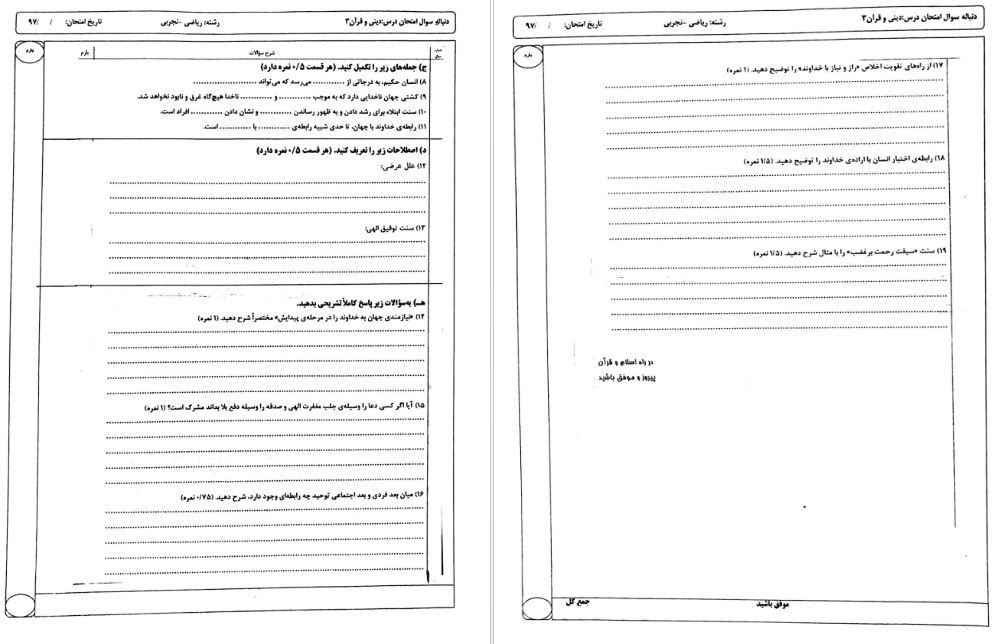 دنباله سوال امتحان درس:دینی و قرآن۳ رشته: ریاضی -تجربی تاریخ امتحان: / /۹۷
شرح سوالات بارم
ج) جمله‌های زیر را تکمیل کنید. (هر قسمت ۰/۵ نمره دارد)
۸) انسان حکیم، به درجاتی از .......... می‌رسد که می‌تواند ....................
۹) کشتی جهان ناخدایی دارد که به موجب .......... و .......... ناخدا هیچ‌گاه غرق و نابود نخواهد شد.
۱۰) سنت ابتلاء برای رشد دادن و به ظهور رساندن .......... و نشان دادن .......... افراد است.
۱۱) رابطه‌ی خداوند با جهان، تا حدی شبیه رابطه‌ی .......... با .......... است.
د) اصطلاحات زیر را تعریف کنید. (هر قسمت ۰/۵ نمره دارد)
۱۲) علل عرضی:
۱۳) سنت توفیق الهی:
هـ) به‌سؤالات زیر پاسخ کاملاً تشریحی بدهید.
۱۴) «نیازمندی جهان به خداوند را در مرحله‌ی پیدایش» مختصراً شرح دهید. (۱ نمره)
۱۵) آیا اگر کسی دعا را وسیله‌ی جلب مغفرت الهی و صدقه را وسیله دفع بلا بداند مشرک است؟ (۱ نمره)
۱۶) میان بعد فردی و بعد اجتماعی توحید چه رابطه‌ای وجود دارد، شرح دهید. (۰/۷۵ نمره)
دنباله سوال امتحان درس:دینی و قرآن۳ رشته: ریاضی -تجربی تاریخ امتحان: / /۹۷
بارم
۱۷) از راه‌های تقویت اخلاص «راز و نیاز با خداوند» را توضیح دهید. (۱ نمره)
۱۸) رابطه‌ی اختیار انسان با اراده‌ی خداوند را توضیح دهید. (۱/۵ نمره)
۱۹) سنت «سبقت رحمت بر غضب» را با مثال شرح دهید. (۱/۵ نمره)
در راه اسلام و قرآن
پیروز و موفق باشید
موفق باشید جمع کل